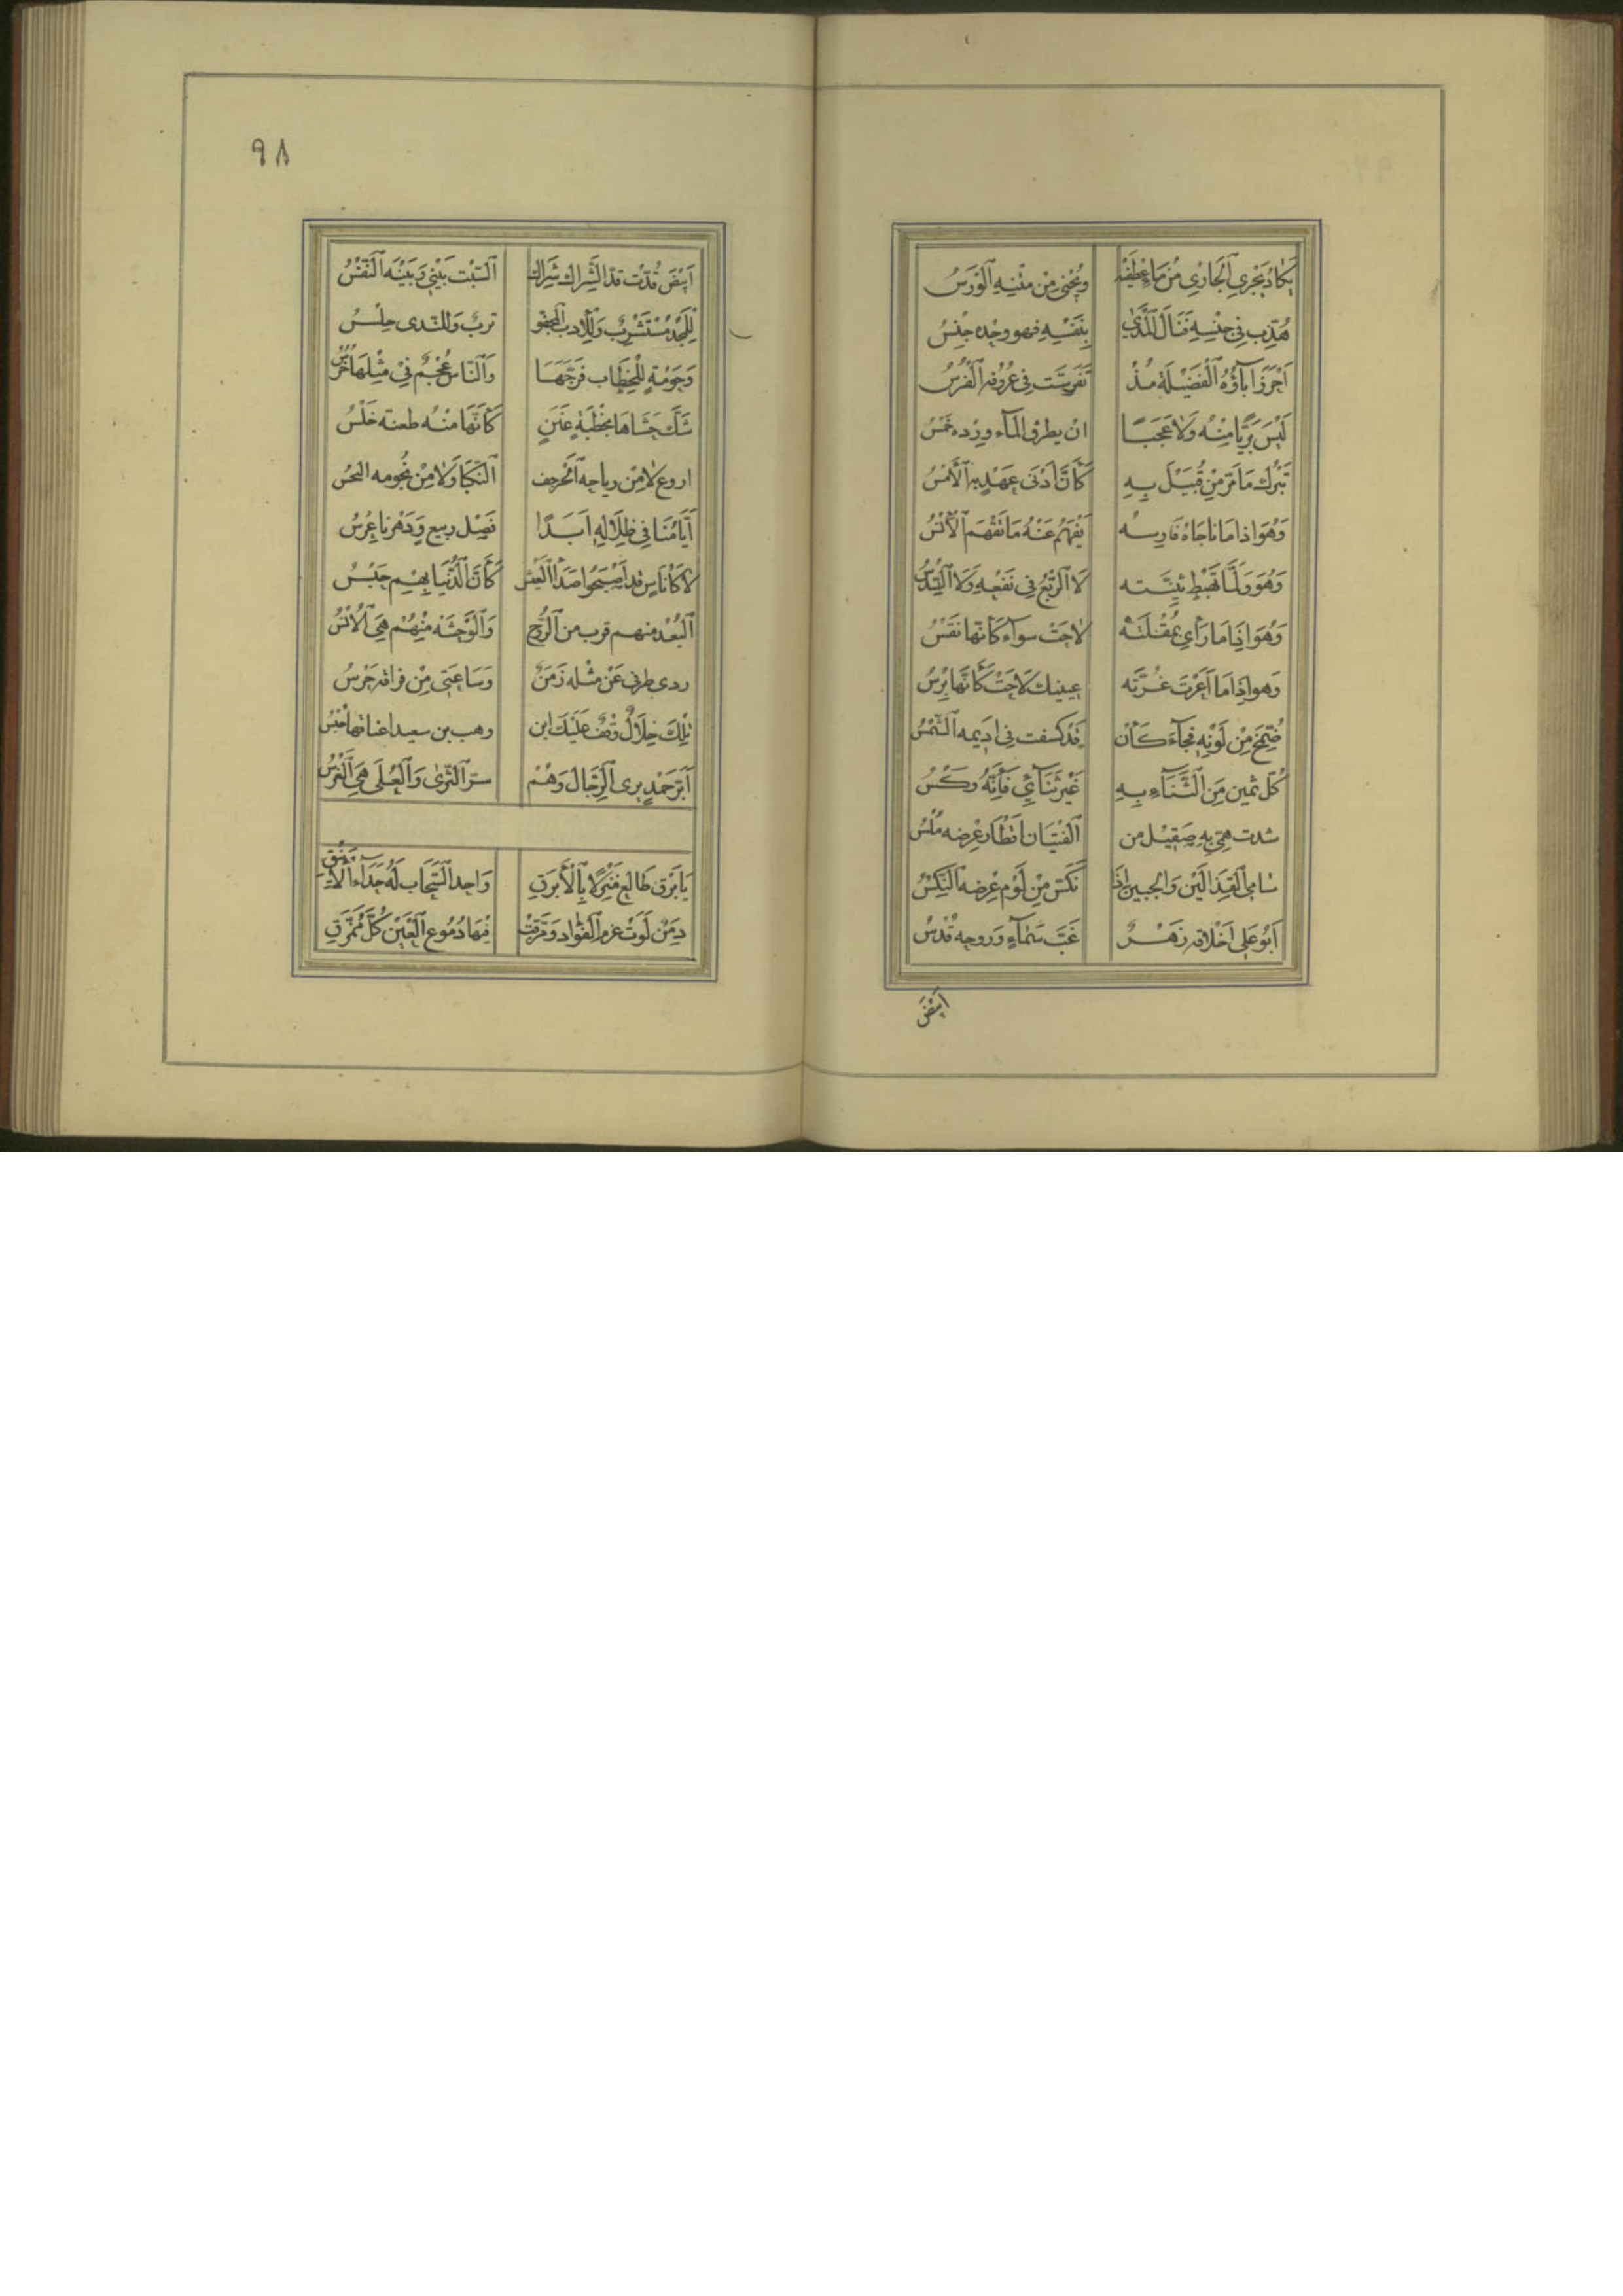 يَكَادُ يَجْرِي الْجَارِي مِنْ مَاءِ عِطْفَيْهِ وَيُجْنَى مِنْ مَتْنِهِ الْوَرْسُ
هُذِّبَ فِي جِنْسِهِ فَنَالَ الْمَدَى بِنَفْسِهِ فهو وحده جِنْسُ
اَحْرَزَ اٰبَآؤُهُ الْفَضِيْلَةَ مُذْ تَفَرَّسَتْ فِي عُرُوقِهِ الْفُرْسُ
لَيْسَ بَدِيًّا مِنْهُ وَلَا عَجَبًا ان يطرق المآء ورده خِمْسُ
يَتْرُك مَا مَرَّ مِنْ قُبَيْلَ بِهِ كَأَنَّ اَدْنَى عَهْدٍ بِهِ الْأَمْسُ
وَهُوَ اذا مَا نَاجَاهُ فَارِسُه يَفْهَمُ عَنْهُ مَا تَفْهَمُ الْأُنْسُ
وَهُوَ وَلَمَّا تَهْبِطْ ثنيَّته لَا الرَّبْعُ فِي نَفْعِهِ وَلَا السُّدْسُ
وَهُوَ اِذَا مَا رَأَي بُمُقْلَتَهْ لَاحَتْ سوآء كَأَنَّها نَقْسُ
وَهوَ اِذَا مَا اَعَرْتَ غُرَّتَه عينيك لَاحَتْ كَأَنَّهَا بِرْسُ
ضُمِّخَ مِنْ لَوْنِهِ فَجَآءَ كَأَنْ قَدْ كسفت فِي اَدِيمه الشَّمْسُ
كُلّ ثمين مِنَ الثَّنَآءِ بِهِ غَيْرَ ثَنَآئِي فَاِنَّهُ وَكْسُ
شدت هَمِّي بِهِ صَقِيْل من الْفِتْيَان اَقْطَار عِرْضِه مُلْسُ
سَامِي الْقَذَالَيْن وَالجبين اِذَا نَكَّسَ مِنْ لَوْم عِرْضِه النِّكْسُ
اَبُو عَلِي اَخْلَاقه زَهَرٌ غِبَّ سَمَآءٍ وَروحه قُدْسُ
اَبْيَضَ
٩٨
اَبْيَضَ قُدَّتْ قَدَّ الشِّرَاك شِرَاك السَّبْت بَيْنِي وَبَيْنَه النَّفْسُ
لِلْمَجْد مُسْتَشْرِفٌ وَلِلْادب الْمَجْفُوِّ تربٌ وَللنَّدى حِلْسُ
وَحَوْمَةٍ لِلْخِطَاب فَرَّجَهَا وَالنَّاس عُجْمٌ فِي مِثْلِهَا خُرْسُ
شَكَّ حَشَاهَا بِخُطْبَةٍ عَنَنٍ كَأَنَّهَا مِنْهُ طعنة خَلْسُ
اروع لَا مِنْ رياحِه الْحَرجَف النَّكْبَا وَلَا مِنْ نُجومه النحْسُ
اَيَّامُنَا فِي ظِلَالِهِ اَبَدًا فَصْل ربيع وَدَهْرنا عِرْسُ
لَا كَأُنَاسٍ قد اَصْبَحُوا صَدَأَ الْعَيْش كَأَنَّ الدُّنْيَا بِهِمْ حَبْسُ
الْبُعْد منهم قرب من الرُّوْحِ وَالْوَحْشَة مِنْهُمْ هِيَ الْأُنْسُ
ردى بطرفي عَنْ مثْله زَمَنٌ وَسَاعَتِي مِنْ فراقه حَرْسُ
تِلْكَ خِلَالٌ وُقِفْ عَلَيْكَ ابن وهب بن سعيد اعناقها حُبْسُ
اَبَرّ حَمْدٍ يرى الرِّجَال وَهُمْ سِرّ الثَّرَى وَالْعُلَى هِيَ الْغَرْسُ
يَا بَرْق طَالِع مَنْزِلًا بِالْأَبْرَقِ وَاحد السَّحَاب لَهُ حِدَآء الْأَيْنُقِ
دِمَنٌ لَوَتْ عزم الْفُؤَاد وَمَزَّقَتْ فِيْهَا دُمُوع الْعَيْن كُلَّ مُمَزَّقِ